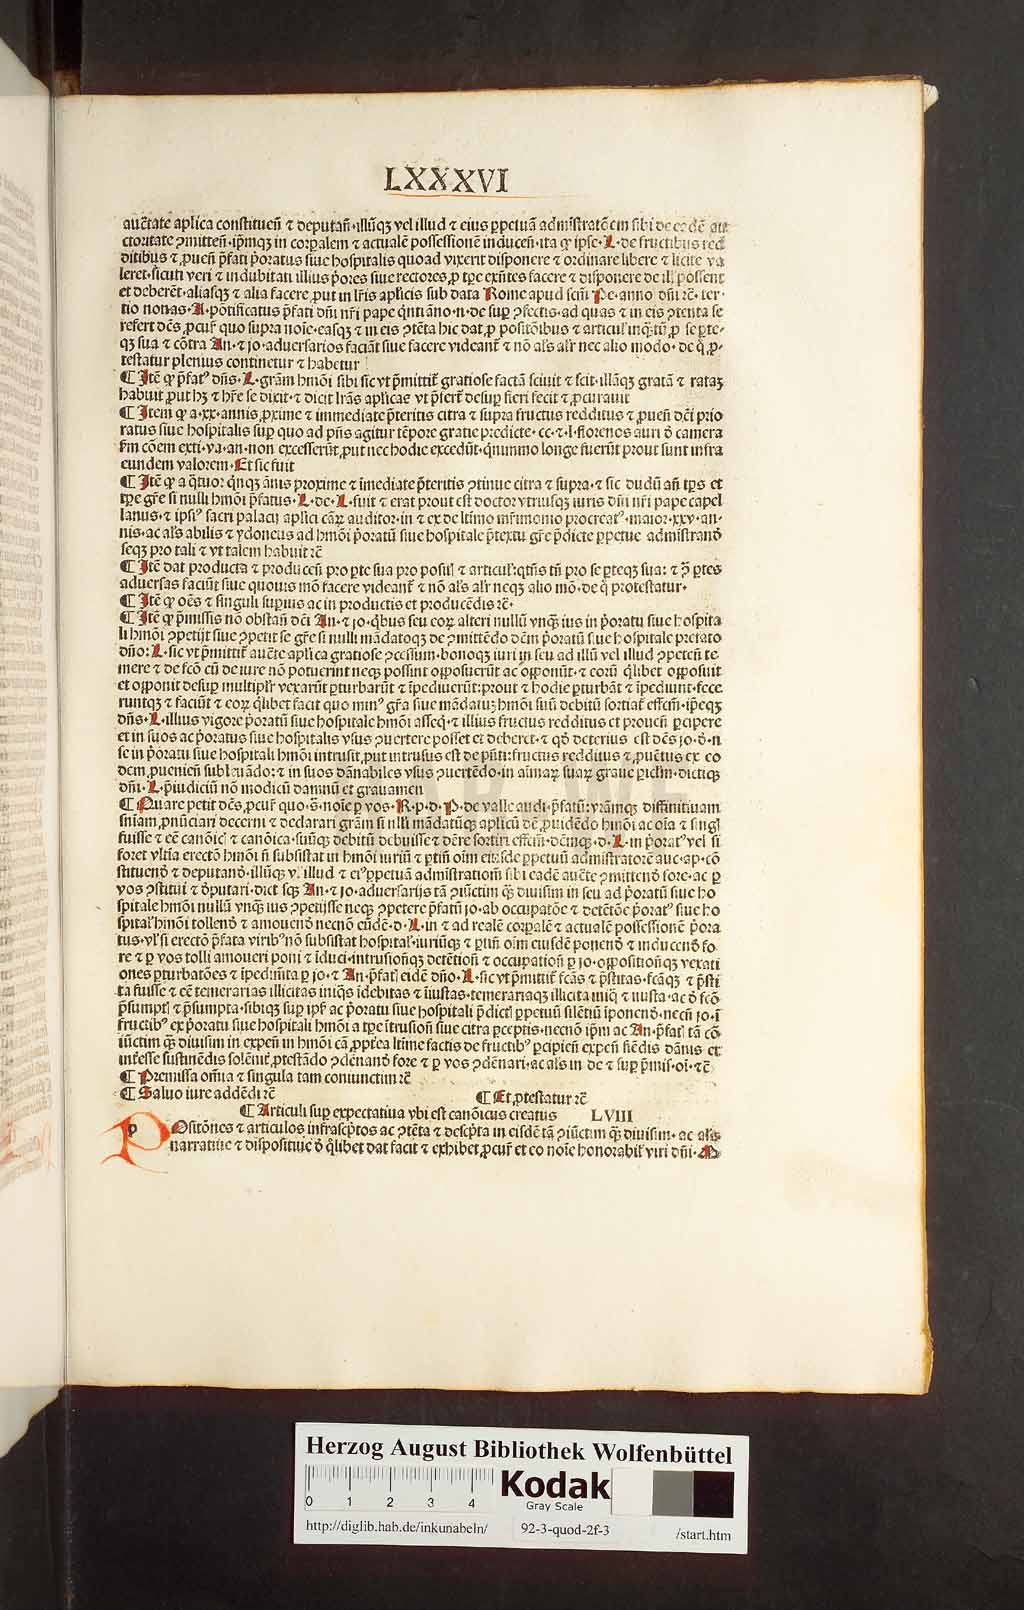 LXXXVI
auctẽtate aplica constitueñ ⁊ deputañ·illũqꝫ vel illud ⁊ eius ꝑpetuã admĩstratẽ cm sibi de eadẽ auc
ctoritate ꝯmitteñ·ip̃mqꝫ in corꝑalem ⁊ actualẽ possessionẽ induceñ·ita ꝙ ipse·L·de fructibus red
ditibus ⁊ ꝓueñ p̃fati p̃oratus siue hospitalis quoad vixerit disponere ⁊ ordinare libere ⁊ licite va
leret·sicuti veri ⁊ indubitati illius p̃ores siue rectores ꝓ tꝑe exñtes facere ⁊ disponere de il possent
et deberẽt·aliasqꝫ ⁊ alia facere ꝓut in lr̃is aplicis sub data Rome apud scm̃ Pe·anno dñi rẽ·ter-
tio nonas·A·põtificatus p̃fati dñi nr̃i pape q̃nti ãno·n·de suꝑ ꝯfectis·ad quas ⁊ in eis ꝯtenta se
refert dẽs ꝓcur̃ quo supra noĩe·easqꝫ ⁊ in eis ꝯtẽta hic dat ꝓ positõibus ⁊ articul inq̃tũ ꝓ se ꝑte-
qꝫ sua ⁊ cõtra An·⁊ jo·aduersarios faciãt siue facere videant̃ ⁊ nõ als̃ alr̃ nec alio modo·de q̃ ꝓ-
testatur plenius continetur ⁊ habetur
¶ Itẽ ꝙ p̃fatꝰ dñs·L·grãm hm̃õi sibi sic vt p̃mittit̃ gratiose factã sciuit ⁊ scit·illãqꝫ gratã ⁊ rataꝫ
habuit ꝓut hꝫ ⁊ hr̃e se dixit·⁊ dicit lr̃as aplicas vt p̃fert̃ desuꝑ fieri fecit ⁊ ꝓcurauit
¶ Item ꝙ a·xx·annis ꝓxime ⁊ immediate p̃teritis citra ⁊ supra fructus redditus ⁊ ꝓueñ dc̃i prio
ratus siue hospitalis suꝑ quo ad pñs agitur tẽpore gratie predicte·cc·⁊·l·florenos auri đ camera
km̃ cõem exti·va·an·non excesserũt ꝓut nec hodie excedũt·q̃nimmo longe fuerũt prout sunt infra
eundem valorem·Et sic fuit
¶ Itẽ ꝙ a q̃tuor q̃nqꝫ ãnis proxime ⁊ ĩmediate p̃teritis ꝯtinue citra ⁊ supra·⁊ sic dudũ añ tꝑs et
tꝑe gr̃e si nulli hm̃õi p̃fatus·L·de·L·fuit ⁊ erat prout est doctor vtriusqꝫ iuris dñi nr̃i pape capel
lanus·⁊ ipsiꝰ sacri palacij aplici cãꝝ auditor·in ⁊ ex de ltimo mr̃imonio procreatꝰ·maior·xxv·an-
nis·ac als̃ abilis ⁊ ydoneus ad hm̃õi p̃oratũ siue hospitale p̃textu gr̃e p̃dicte ꝑpetue admĩstranđ
seqꝫ pro tali ⁊ vt talem habuit rẽ
¶ Itẽ dat producta ⁊ produceñ pro ꝑte sua pro posit̃ ⁊ articul:qtñs tñ pro se ꝑteqꝫ sua:⁊ ꝯ̃ ꝑtes
aduersas faciũt siue quouis mõ facere videant̃ ⁊ nõ als̃ alr̃ neqꝫ alio mõ·de q̃ protestatur·
¶ Itẽ ꝙ oẽs ⁊ singuli suꝑius ac in productis et producẽdis rẽ·
¶ Itẽ ꝙ p̃missis nõ obstañ dc̃i An·⁊ jo·q̃bus seu eoꝝ alteri nullũ vnqꝫ ius in p̃oratu siue hospita
li hm̃õi ꝯpetijt siue ꝯpetit se gr̃e si nulli mãdatoqꝫ de ꝯmittẽdo dẽm p̃oratũ siue hospitale prefato
dño:L·sic vt p̃mittit̃ aucte aplica gratiose ꝯcessum·bonoqꝫ iuri in seu ad illũ vel illud ꝯpeteñ te
mere ⁊ de fc̃õ cũ de iure nõ potuerint neqꝫ possint opposuerũt ac opponũt·⁊ eorũ q̃libet opposuit
et opponit desuꝑ multiplr̃ vexarũt ꝑturbarũt ⁊ ĩpediuerũt:prout ⁊ hodie ꝑturbãt ⁊ ĩpediunt·fece
runtqꝫ ⁊ faciũt ⁊ eoꝝ q̃libet facit quo minꝰ gr̃a siue mãdatuꝫ hm̃õi suũ debitũ sortiat̃ effcm̃·ip̃eqꝫ
dñs·L·illius vigore p̃oratũ siue hospitale hm̃õi asseq̃·⁊ illius fructus redditus et proueñ ꝑcipere
et in suos ac p̃oratus siue hospitalis vsus ꝯuertere posset et deberet·⁊ qđ deterius est dẽs jo·đ·n
se in p̃oratu siue hospitali hm̃õi intrusit ꝓut intrusus est de pñti:fructus redditus ⁊ ꝓuẽtus ex eo
dem ꝓuenieñ subleuãdo:⁊ in suos dãnabiles vsus ꝯuertẽdo·in aĩmaꝝ suaꝝ graue ꝑiclm̃·dictiqꝫ
dñi·L·p̃iudiciũ nõ modicũ damnũ et grauamen
¶ Quare petit dẽs ꝓcur̃ quo·s̃·noĩe ꝑ vos·R·p·d·P·de valle audi·p̃fatũ:vr̃amqꝫ diffinitiuam
sniam ꝓnũciari decerni ⁊ declarari grãm si nlli mãdatũqꝫ aplicũ de ꝓuidẽdo hm̃õi ac oĩa ⁊ singl
fuisse ⁊ eẽ canõic̃ ⁊ canõica·suũqꝫ debitũ debuisse ⁊ dẽre sortiri effcm̃·dẽmqꝫ·d·L·in p̃oratꝰ vel si
foret vltĩa erectõ hm̃õi ñ subsistat in hm̃õi iuriũ ⁊ ꝑtiñ oĩm eiusdẽ ꝑpetuũ admĩstratorẽ auc·ap·cõ
stituenđ ⁊ deputanđ·illũqꝫ vl illud ⁊ eiꝰ ꝑpetuã admĩstratiom̃ sibi eadẽ aucte ꝯmittenđ fore·ac ꝑ
vos ꝯstitui ⁊ đputari·dict sqꝫ An·⁊ jo·aduersarijs tã ꝯiũctim q̃ꝫ diuisim in seu ad p̃oratũ siue ho
spitale hm̃õi nullũ vnqꝫ ius ꝯpetijsse neqꝫ ꝯpetere p̃fatũ jo·ab occupatõe ⁊ detẽtõe p̃oratꝰ siue ho
spital hm̃õi tollenđ ⁊ amouenđ necnõ eũdẽ·d·L·in ⁊ ad realẽ corꝑalẽ ⁊ actualẽ possessionẽ p̃ora
tus·vl si erectõ p̃fata viribꝰ nõ subsistat hospital·iuriũqꝫ ⁊ ꝑtiñ oĩm eiusdẽ ponenđ ⁊ inducenđ fo
re ⁊ ꝑ vos tolli amoueri poni ⁊ ĩduci·intrusionqꝫ detẽtioñ ⁊ occupatioñ ꝑ jo·oppositionqꝫ vexati
ones ꝑturbatões ⁊ ĩpedimẽta ꝑ jo·⁊ An·p̃fat eidẽ dño·L·sic vt p̃mittit̃ fcãs ⁊ p̃stitas·fcãqꝫ ⁊ p̃sti
ta fuisse ⁊ eẽ temerarias illicitas iniq̃s ĩdebitas ⁊ ĩiustas·temerariaqꝫ illicita iniq̃ ⁊ iiusta·ac đ fcõ
p̃sumpt ⁊ p̃sumpta·sibiqꝫ suꝑ ip̃s ac p̃oratu siue hospitali p̃dict ꝑpetuũ silẽtiũ ĩponenđ·necñ jo·ĩ
fructibꝰ ex p̃oratu siue hospitali hm̃õi a tꝑe ĩtrusioñ siue citra ꝑceptis·necnõ ip̃m ac An·p̃fat tã cõ
iũctim q̃ꝫ diuisim in expeñ in hm̃õi cã ꝓpterea ltime factis de fructibꝰ ꝑcipieñ expeñ fiẽdis dãnis et
int̃esse sustinẽdis solẽnit̃ ꝓtestãdo ꝯdẽnanđ fore ⁊ ꝑ vos ꝯdẽnari·ac als̃ in đ ⁊ suꝑ p̃mis·oĩ·⁊ cẽ
¶ Premissa om̃ia ⁊ singula tam coniunctim rẽ
¶ Saluo iure addẽdi rẽ ¶ Et ꝓtestatur rẽ
¶ Articuli suꝑ expectatiua vbi est canõicus creatus LVIII
POsitões ⁊ articulos infrascp̃tos ac ꝯtẽta ⁊ descp̃ta in eisdẽ tã ꝯiũctim q̃ꝫ diuisim·ac als̃
narratiue ⁊ dispositiue đ q̃libet dat facit ⁊ exhibet ꝓcur̃ et eo noĩe honorabil viri dñi·M
Herzog August Bibliothek Wolfenbüttel
0 1 2 3 4
Kodak
Gray Scale
http://diglib.hab.de/inkunabeln/ 92-3-quod-2f-3 /start.htm